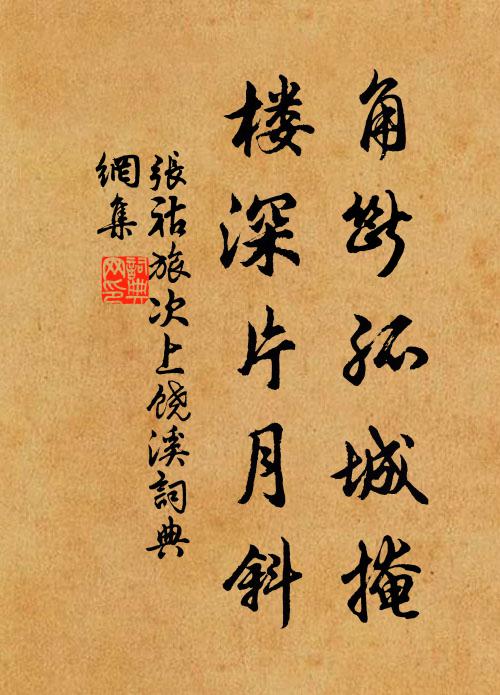 角断孤城掩
楼深片月斜
張祜旅次上饒溪詞典
網集
詞典
网印